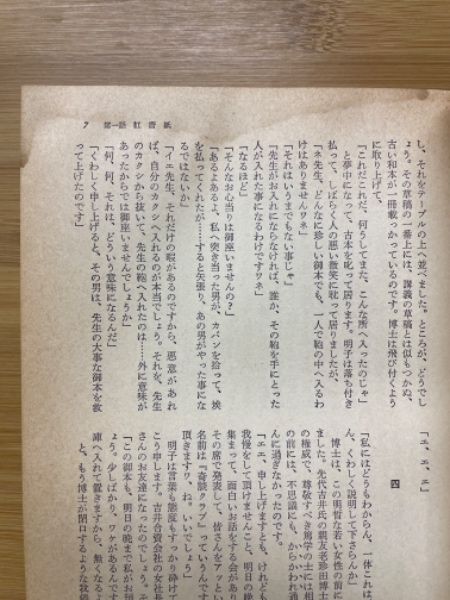 7　第一話 紅唐紙
し、それをテーブルの上へ並べました。ところが、どうでし
ょう。その草稿の一番上には、講義の草稿とは似もつかぬ、
古い和本が一冊載っかっているのです。博士は飛び付くよう
に取り上げて、
「これだこれだ、何うしてまた、こんな所へ入ったのじゃ」
と夢中になって、古本を叱って居ります。明子は落ち付き
払って、しばらく人の悪い微笑に耽って居りましたが、
「ネ先生、どんなに珍しい御本でも、一人で鞄の中へ入るわ
けはありませんワネ」
「それはいうまでもない事じゃ」
「先生がお入れにならなければ、誰か、その鞄を手にとった
人が入れた事になるわけですワネ」
「なるほど」
「そんなお心当りは御座いませんの？」
「あるよあるよ、私へ突き当った男が、カバンを拾って、埃
を払ってくれたが……すると矢張り、あの男がやった事にな
るではないか」
「イエ先生、それだけの暇があるのですから、悪意があれ
ば、自分のカクシへ入れるのが本当でしょう。それを、先生
のカクシから抜いて、先生の鞄へ入れたのは……外に意味が
あったからでは御座いませんでしょうか」
「何、何、それは、どういう意味になるんだ」
「くわしく申し上げると、その男は、先生の大事な御本を救
って上げたのです」
「エ、エ、エ」
四
「私にはどうもわからん、一体これは
ん、くわしく説明して下さらんか」
博士は、この明皙な若い女性の前に
ました。先代吉井氏の親友老珍田博士
の権威で、尊敬すべき篤学の士には相
の前には、不思議にも、からかわれ過
んに過ぎなかったのです。
「エエ、申し上げますとも、けれども
我慢をして頂けませんこと、明日の晩
集まって、面白いお話をする会があり
その席で発表して、皆さんをアッとい
名前は『奇談クラブ』っていうんです
頂きますワ、ね。いいでしょう」
明子は言葉も態度もすっかり砕けて
こう申します。吉井合資会社の女社長
さんのお友達になったのでしょう。そ
「この御本も、明日の晩まで私がお預
ょう。少しばかり、ワケがあるんです
庫へ入れて置きますから、無くなる
と、もう博士が閉口するような状態